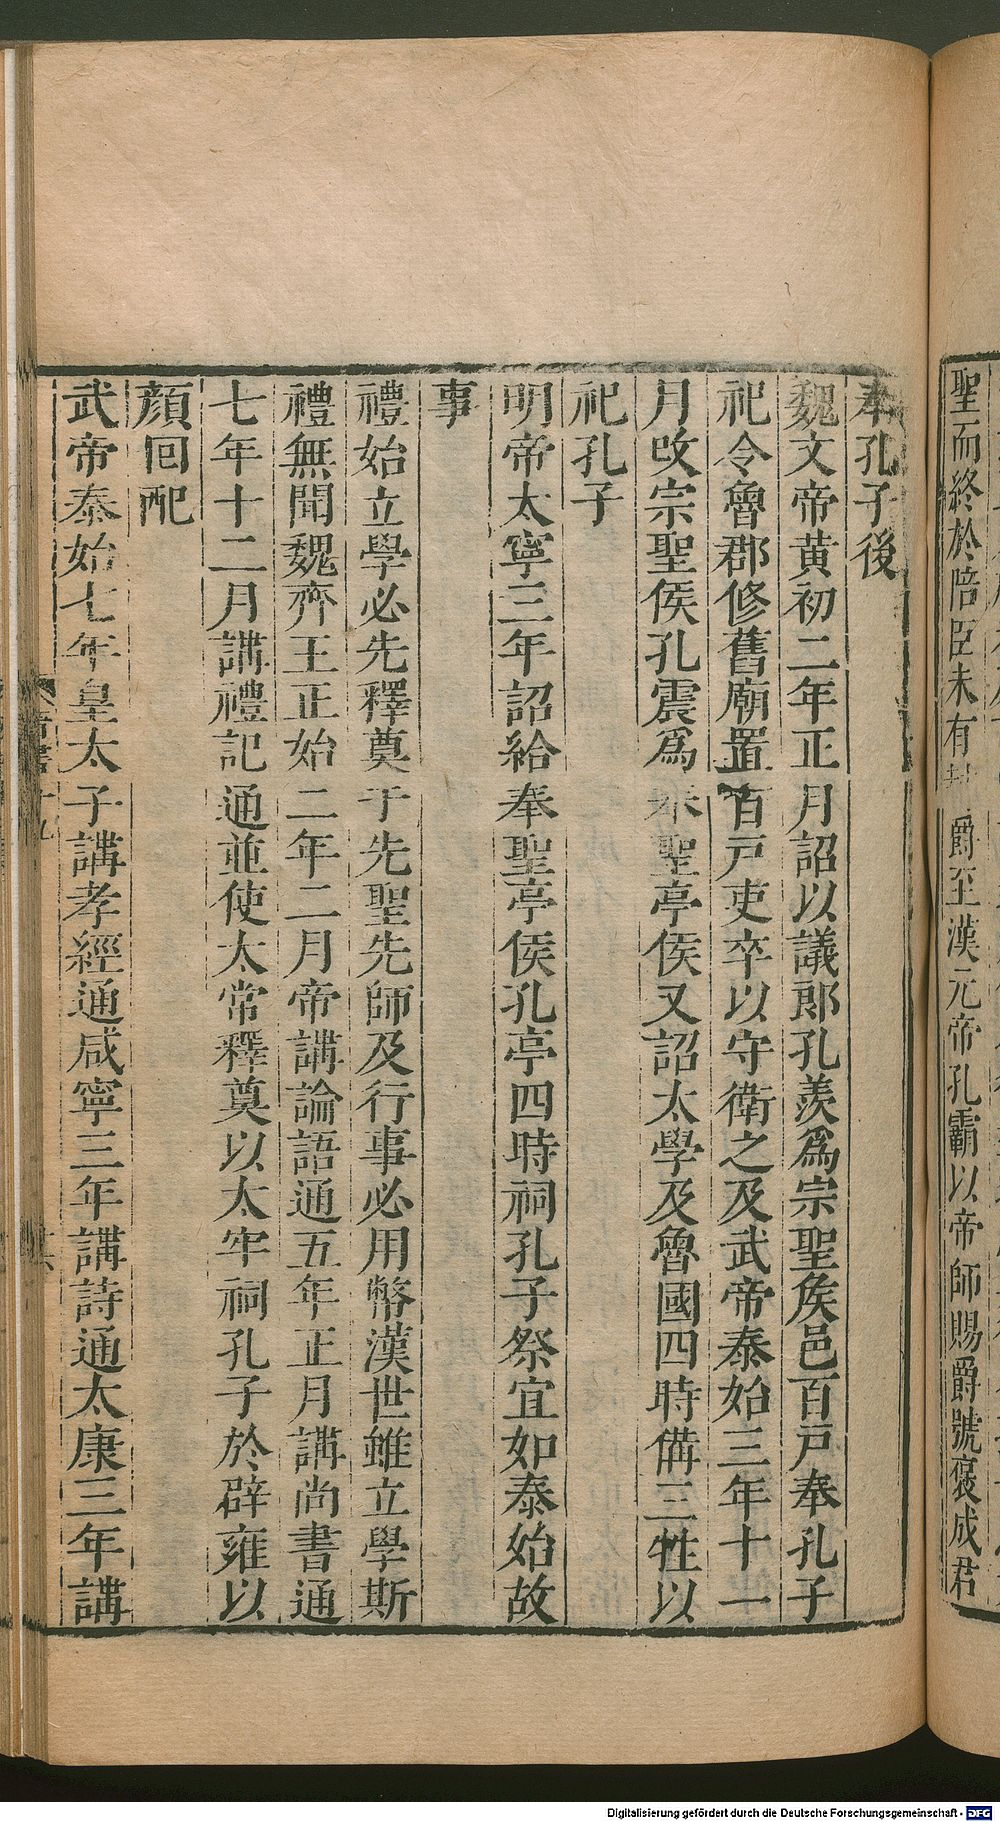 聖而終於陪臣未有 爵至漢元帝孔霸以帝師賜爵號褒成君
奉孔子後
魏文帝黄初二年正月詔以議郎孔羨爲宗聖侯邑百戸奉孔子
祀令魯郡修舊廟置百戸吏卒以守衛之及武帝泰始三年十一
月改宗聖侯孔震爲奉聖亭侯又詔太學及魯國四時備三牲以
祀孔子
明帝太寧三年詔給奉聖亭侯孔亭四時祠孔子祭宜如泰始故
事
禮始立學必先釋奠于先聖先師及行事必用幣漢世雖立學斯
禮無聞魏齊王正始二年二月帝講論語通五年正月講尚書通
七年十二月講禮記通並使太常釋奠以太牢祠孔子於辟雍以
顔回配
武帝泰始七年皇太子講孝經通咸寧三年講詩通太康三年講
Digitalisierung gefördert durch die Deutsche Forschungsgemeinschaft - DFG